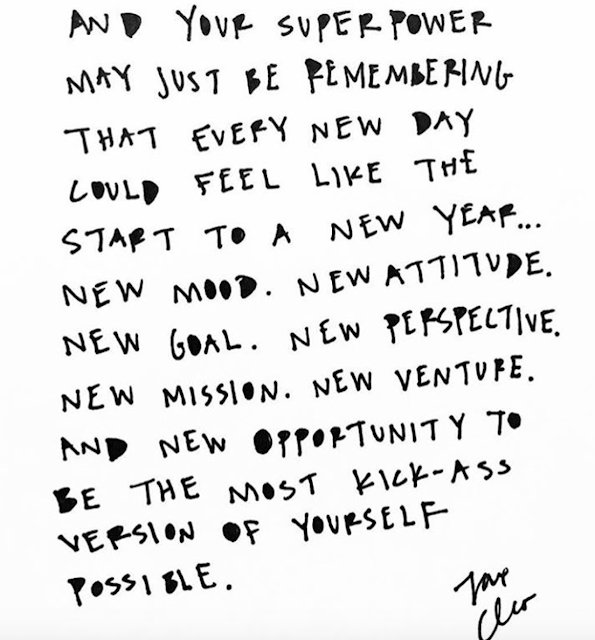 AND YOUR SUPERPOWER
MAY JUST BE REMEMBERING
THAT EVERY NEW DAY
COULD FEEL LIKE THE
START TO A NEW YEAR...
NEW MOOD. NEW ATTITUDE.
NEW GOAL. NEW PERSPECTIVE.
NEW MISSION. NEW VENTURE.
AND NEW OPPORTUNITY TO
BE THE MOST KICK-ASS
VERSION OF YOURSELF
POSSIBLE.
Cleo